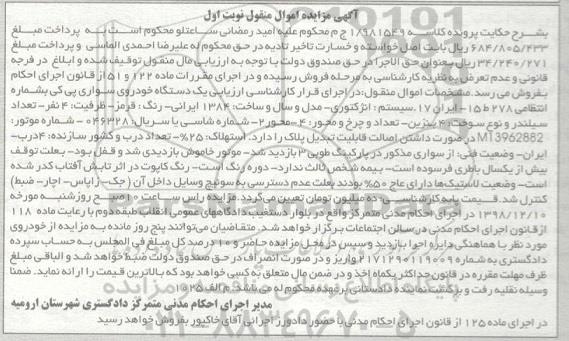 آگهی مزایده اموال منقول نوبت اول
بشرح حکایت پرونده کلاسه 1/981549 ج م محکوم علیه امید رمضانی ساعتلو محکوم است به پرداخت مبلغ
684/805/433 ریال بابت اصل خواسته و خسارت تاخیر تادیه در حق محکوم له علیرضا احمدی الماسی و پرداخت مبلغ
34/240/271 ریال بعنوان حق الاجرا در حق صندوق دولت با توجه به ارزیابی مال منقول توقیف شده و ابلاغ در فرجه
قانونی و عدم تعرض به نظریه کارشناسی به مرحله فروش رسیده و در اجرای مقررات ماده 122 و 51 از قانون اجرای احکام
بفروش می رسد. مشخصات اموال منقول: در اجرای قرار کارشناسی ارزیابی یک دستگاه خودروی سواری پی کی بشماره
انتظامی 278 ب 15 - ایران 17. سیستم: انژکتوری - مدل و سال و ساخت: 1384 ایرانی - رنگ: قرمز - ظرفیت: 4 نفر - تعداد
سیلندر و نوع سوخت: 4 بنزین - تعداد و چرخ و محور: 4 - محور 2 - شماره شاسی یا سریال: 046328 - شماره موتور:
M13962882 در صورت داشتن اصالت قابلیت تبدیل پلاک را دارد. استهلاک: 25% - تعداد درب و کشور سازنده: 4 درب -
ایران - وضعیت فنی: از سواری مذکور در پارکینگ طوبی 3 بازدید شد - موتور خاموش بازدیدی شد و قفل بود - بعلت توقف
بیش از یکسال باطری فرسوده است - بیمه شخص ثالث ندارد - دوره رنگ است - رنگ کاپوت در اثر تابش آفتاب کدر شده
است - وضعیت لاستیک ها دارای عاج 50% بودند بعلت عدم دسترسی به سوئیچ وسایل داخل آن (جک - زاپاس - اچار - ضبط)
کنترل شد. قیمت پایه کارشناسی دوازده میلیون تومان تعیین می گردد. مزایده راس ساعت 10 صبح روز شنبه مورخه
1398/12/10 در اجرای احکام مدنی متمرکز واقع در بلوار دستغیب دادگاههای عمومی انقلاب طبقه دوم با رعایت ماده 118
از قانون اجرای احکام مدنی در سالن اجتماعات برگزار خواهد شد. متقاضیان می توانند پنج روز مانده به مزایده از خودروی
مورد نظر با هماهنگی دایره اجرا بازدید و سپس در محل مزایده حاضر و 10 درصد کل مبلغ فی المجلس به حساب سپرده
دادگستری به شماره 2171290119009 واریز و در صورت انصراف در حق صندوق دولت ضبط خواهد شد و الباقی مبلغ
ظرف مهلت مقرره در قانون حداکثر یکماه اخذ و در ضمن مال متعلق به کسی خواهد بود که بالاترین قیمت را ارائه نماید. ضمنا
وسیله نقلیه رفت و برگشت نماینده دادستانی بر عهده محکوم له می باشد. م الف 1025
مدیر اجرای احکام مدنی متمرکز دادگستری شهرستان ارومیه
در اجرای ماده 125 از قانون اجرای احکام مدنی با حضور دادورز اجرائی آقای خاکپور بفروش خواهد رسید